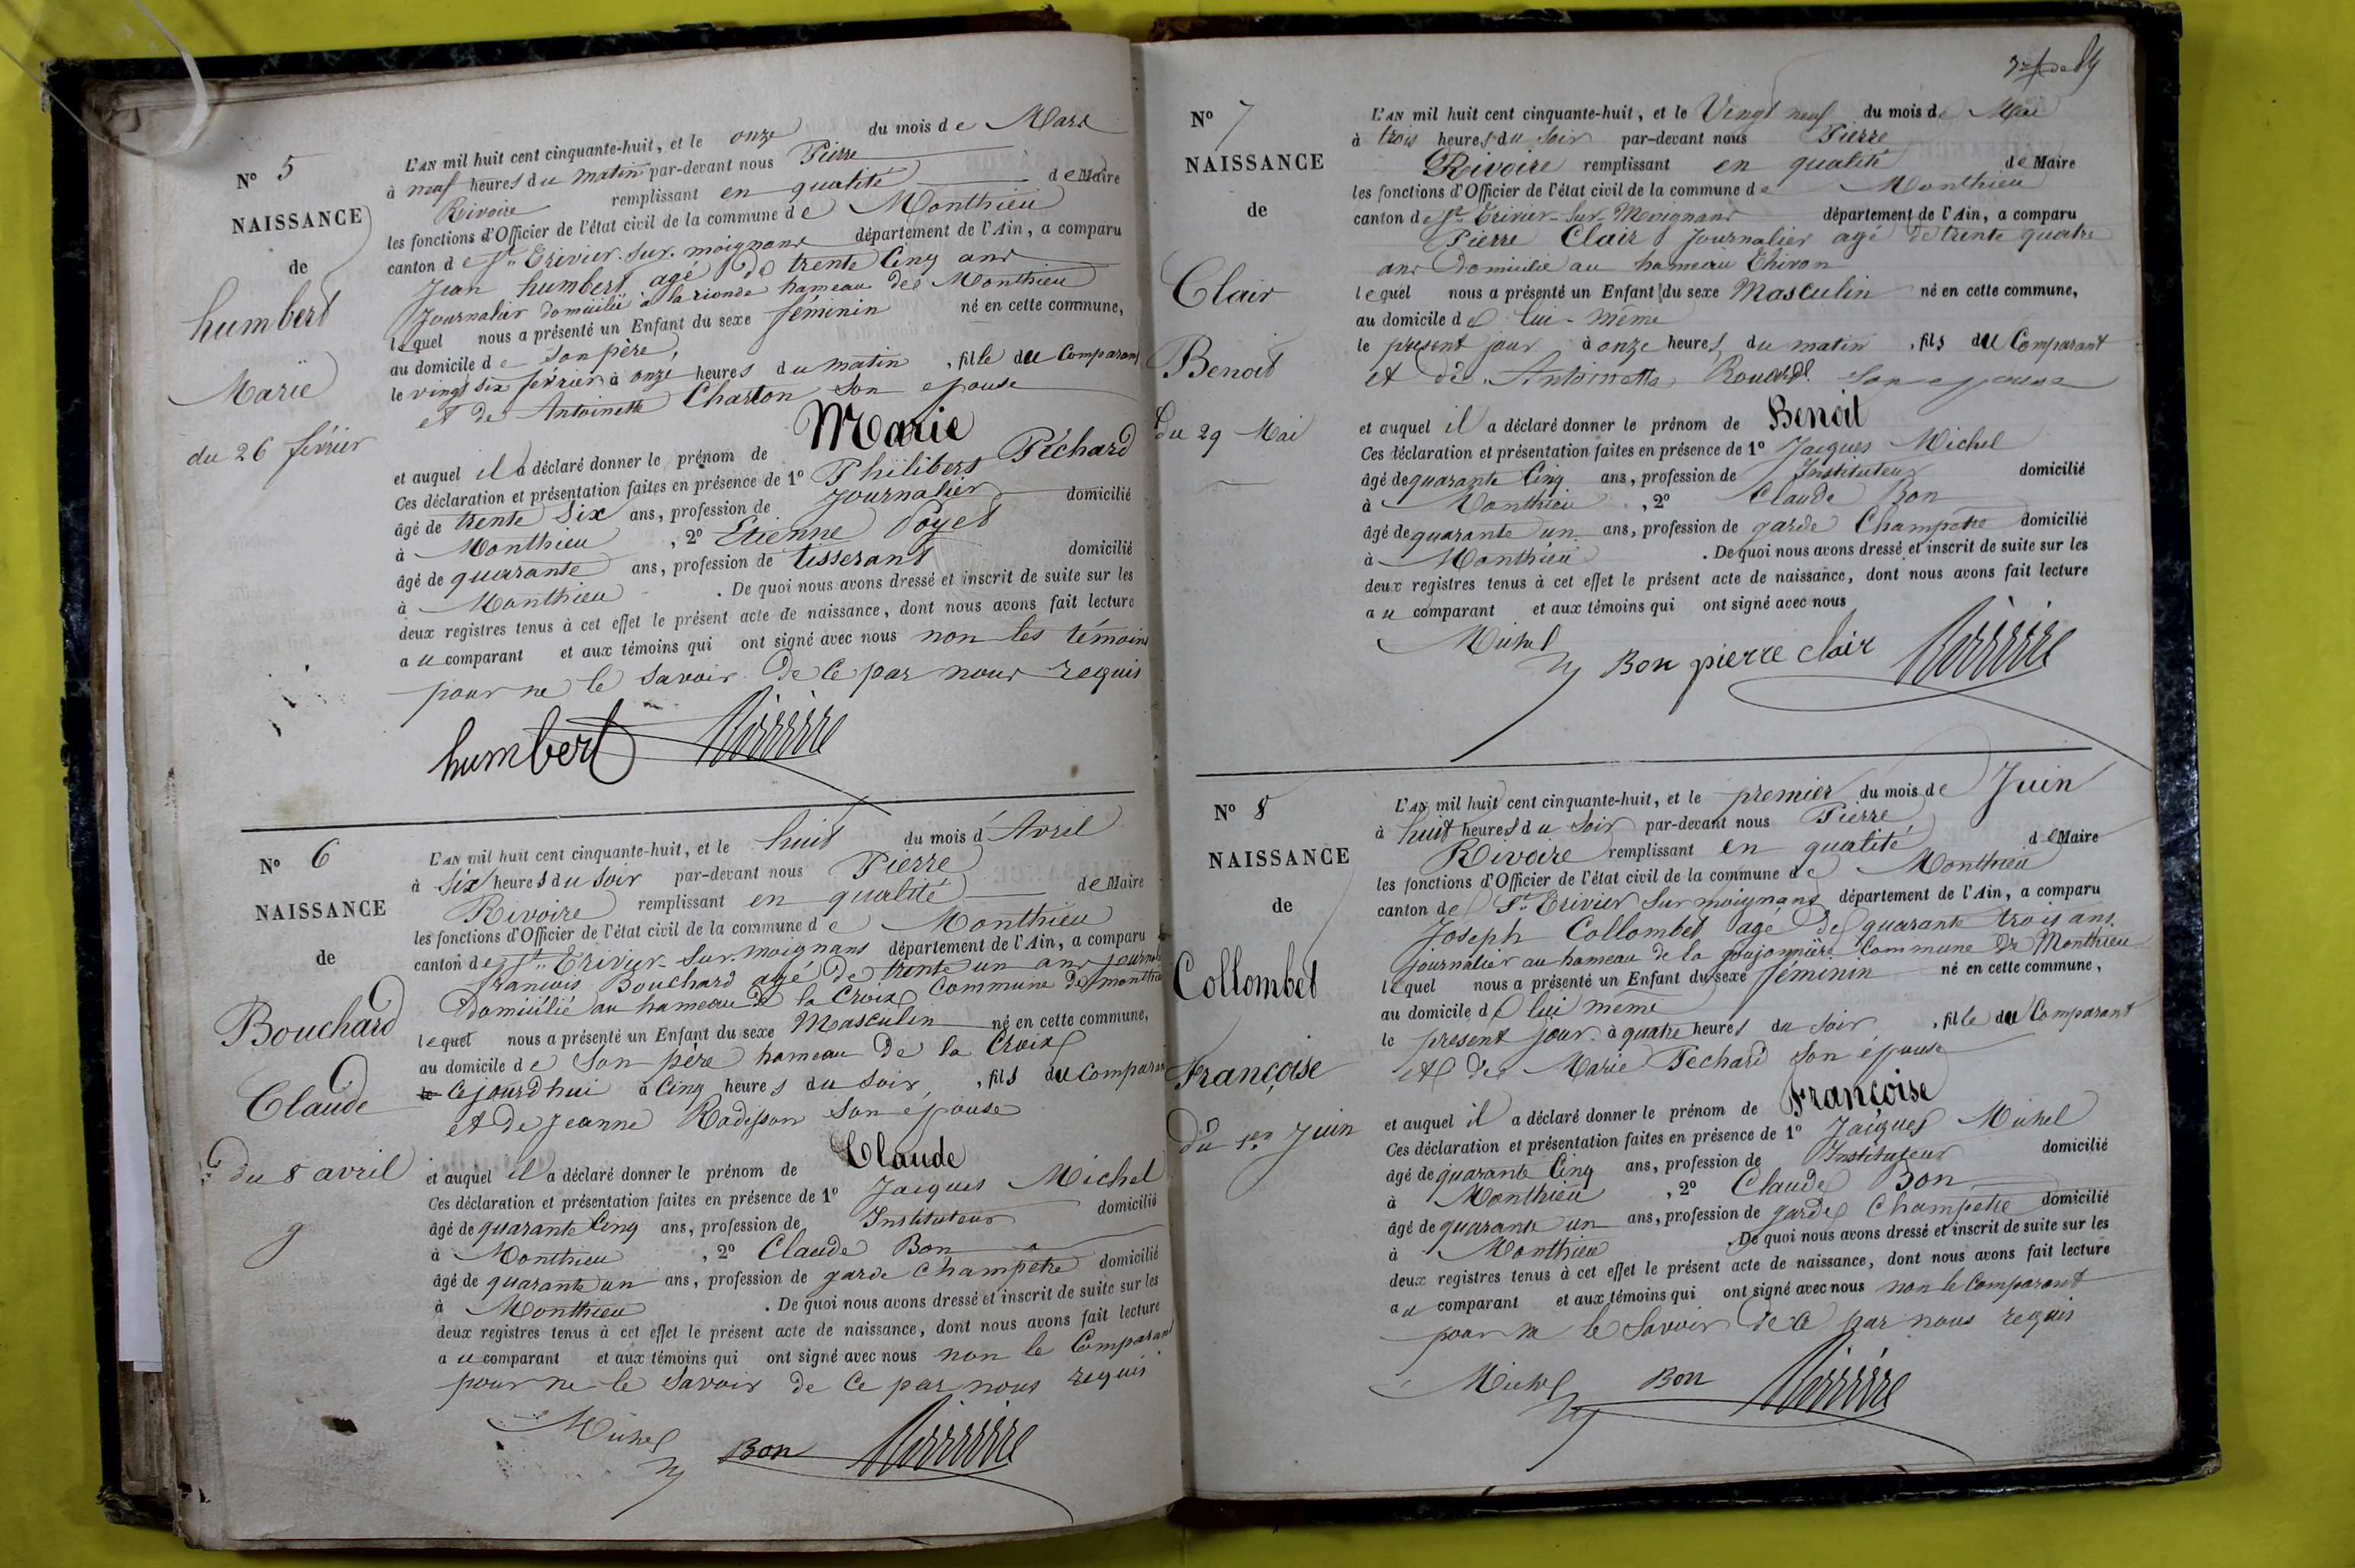 N° 5
NAISSANCE
de
humbert
Marie
du 26 février
L'AN mil huit cent cinquante-huit, et le onze du mois de Mars
à neuf heures du matin par-devant nous Pierre
Rivoire remplissant en qualité de Maire
les fonctions d'Officier de l'état civil de la commune de Monthieu
canton de St Trivier-sur-moignans département de l'Ain, a comparu
Jean humbert agé de trente Cinq ans
Journalier domicilié à la rionde hameau de Monthieu
lequel nous a présenté un Enfant du sexe féminin né en cette commune,
au domicile de son père,
le vingt six février à onze heures du matin, fille du Comparant
et de Antoinette Charton son epouse
et auquel il a déclaré donner le prénom de Marie
Ces déclaration et présentation faites en présence de 1° Philibert Péchard
âgé de trente Six ans, profession de journalier domicilié
à Monthieu, 2° Etienne Poyet
âgé de quarante ans, profession de tisserant domicilié
à Monthieu. De quoi nous avons dressé et inscrit de suite sur les
deux registres tenus à cet effet le présent acte de naissance, dont nous avons fait lecture
au comparant et aux témoins qui ont signé avec nous non les témoins
pour ne le savoir de Ce par nous requis
humbert Rivoire
N° 6
NAISSANCE
de
Bouchard
Claude
du 8 avril
L'AN mil huit cent cinquante-huit, et le huit du mois d'Avril
à Six heures du soir par-devant nous Pierre
Rivoire remplissant en qualité de Maire
les fonctions d'Officier de l'état civil de la commune de Monthieu
canton de St Trivier-Sur-moignans département de l'Ain, a comparu
francois Bouchard agé de trente un ans journal
domicilié au hameau de la Croix Commune de monthieu
lequel nous a présenté un Enfant du sexe Masculin né en cette commune,
au domicile de son père hameau de la Croix
le Cejourd'hui à Cinq heures du soir, fils du Comparant
et de Jeanne Radisson son épouse
et auquel il a déclaré donner le prénom de Claude
Ces déclaration et présentation faites en présence de 1° Jacques Michel
âgé de quarante Cinq ans, profession de Instituteur domicilié
à Monthieu, 2° Claude Bon
âgé de quarante un ans, profession de garde Champetre domicilié
à Monthieu. De quoi nous avons dressé et inscrit de suite sur les
deux registres tenus à cet effet le présent acte de naissance, dont nous avons fait lecture
au comparant et aux témoins qui ont signé avec nous non le Comparant
pour ne le Savoir de Ce par nous requis
Michel Bon Rivoire
N° 7
NAISSANCE
de
Clair
Benoit
du 29 Mai
L'AN mil huit cent cinquante-huit, et le Vingt neuf du mois de Mai
à trois heures du soir par-devant nous Pierre
Rivoire remplissant en qualité de Maire
les fonctions d'Officier de l'état civil de la commune de Monthieu
canton de St Trivier-Sur-Moignans département de l'Ain, a comparu
Pierre Clair Journalier agé de trente quatre
ans Domicilié au hameau Chiron
lequel nous a présenté un Enfant du sexe Masculin né en cette commune,
au domicile de lui-même
le présent jour à onze heures du matin, fils du Comparant
et de Antoinette son epouse
et auquel il a déclaré donner le prénom de Benoit
Ces déclaration et présentation faites en présence de 1° Jacques Michel
âgé de quarante Cinq ans, profession de Instituteur domicilié
à Monthieu, 2° Claude Bon
âgé de quarante un ans, profession de garde Champetre domicilié
à Monthieu. De quoi nous avons dressé et inscrit de suite sur les
deux registres tenus à cet effet le présent acte de naissance, dont nous avons fait lecture
au comparant et aux témoins qui ont signé avec nous
Michel Bon pierre clair Rivoire
N° 8
NAISSANCE
de
Collombet
Françoise
du 1er Juin
L'AN mil huit cent cinquante-huit, et le premier du mois de Juin
à huit heures du Soir par-devant nous Pierre
Rivoire remplissant en qualité de Maire
les fonctions d'Officier de l'état civil de la commune de Monthieu
canton de St Trivier Sur moignans département de l'Ain, a comparu
Joseph Collombet agé de quarante trois ans
journalier au hameau de la goujonnière Commune De Monthieu
lequel nous a présenté un Enfant du sexe féminin né en cette commune,
au domicile de lui même
le présent jour à quatre heures du soir, fille du Comparant
et de Marie Pechard son épouse
et auquel il a déclaré donner le prénom de Françoise
Ces déclaration et présentation faites en présence de 1° Jacques Michel
âgé de quarante Cinq ans, profession de Instituteur domicilié
à Monthieu, 2° Claude Bon
âgé de quarante un ans, profession de garde Champetre domicilié
à Monthieu. De quoi nous avons dressé et inscrit de suite sur les
deux registres tenus à cet effet le présent acte de naissance, dont nous avons fait lecture
au comparant et aux témoins qui ont signé avec nous non le Comparant
pour ne le Savoir de Ce par nous requis
Michel Bon Rivoire